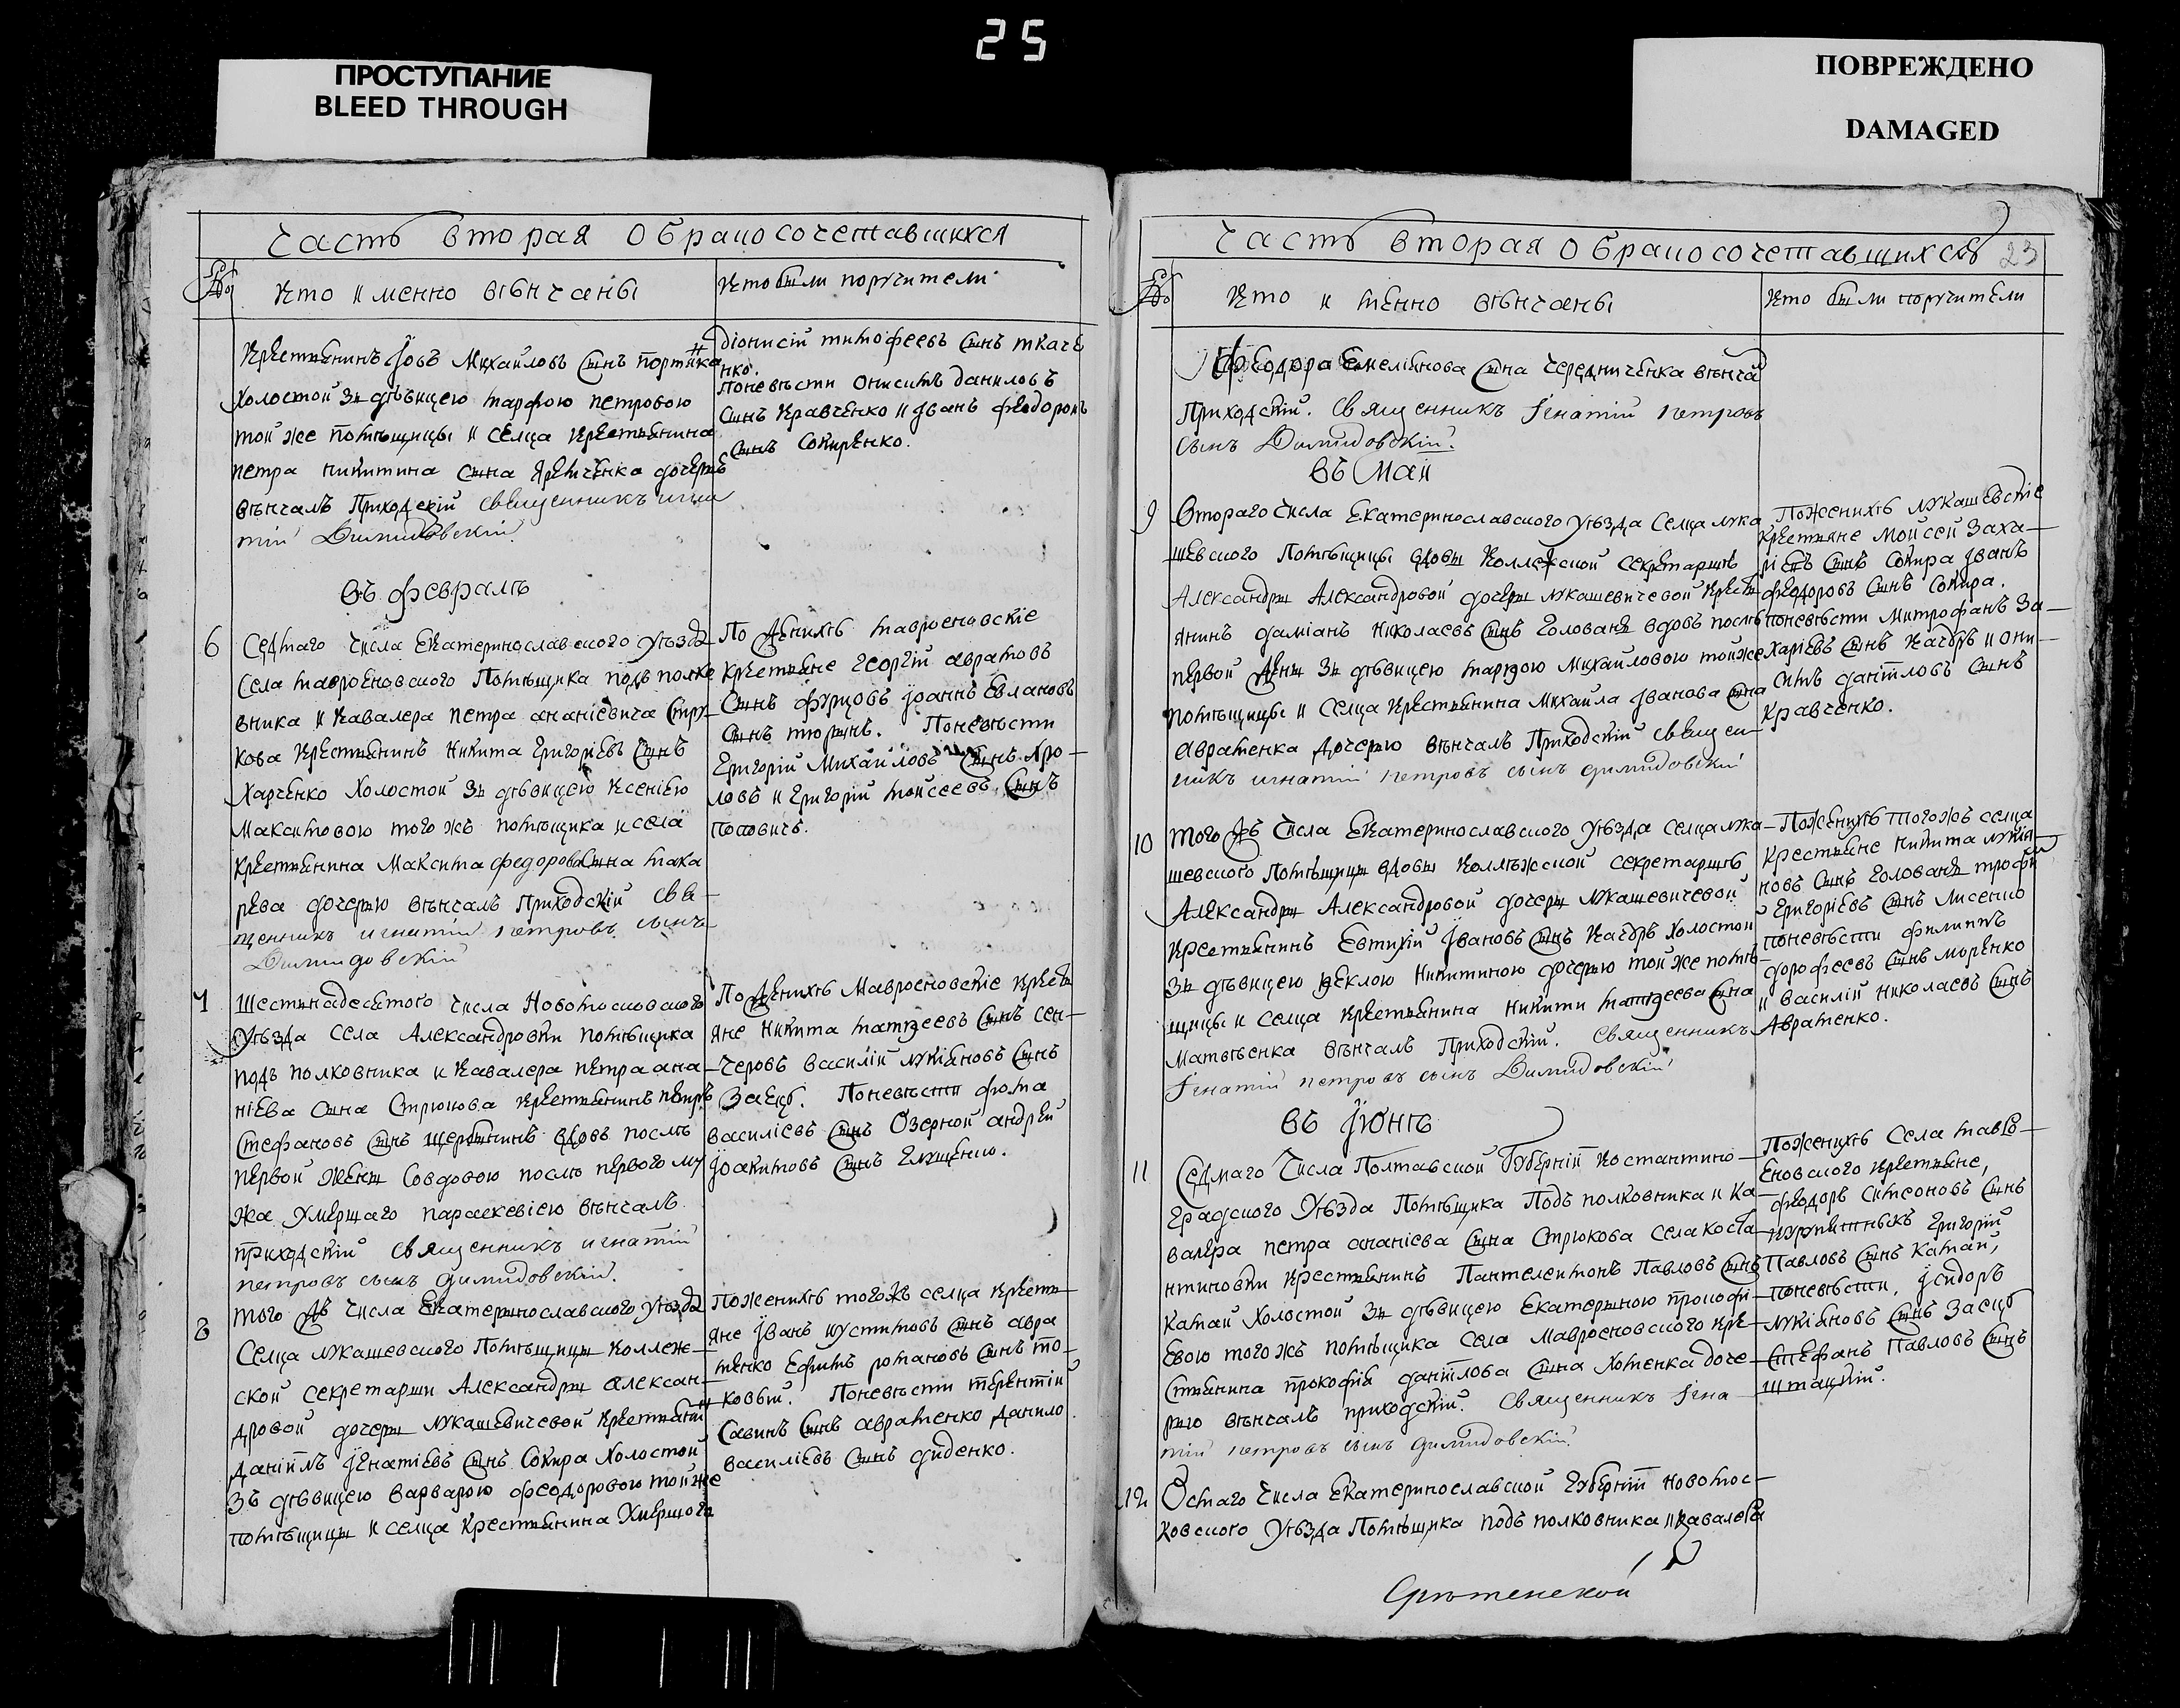 25
ПРОСТУПАНИЕ
BLEED THROUGH
ПОВРЕЖДЕНО
DAMAGED
Часть вторая о бракосочетавшихся
Кто именно вѣнчаны
Кто были поручители
Крестьянинъ Іовъ Михайловъ сынъ
холостой зъ дѣвицею марфою петровою
той же помѣщицы и селца крестьянина
петра никитина сына Яремченка дочерью
вѣнчалъ Приходскій священникъ игна
тій Димидовскій
діонисій тимофеевъ сынъ ткаче
нко.
поневѣсти онисимъ даниловъ
сынъ Кравченко и Іванъ феодоровъ
сынъ Сокиренко.
Въ февралѣ
6 Седмаго числа Екатеринославского уѣзда
села мавроеновского Помѣщика подъ полко
вника и кавалера петра ананіевича Стрю
кова крестьянинъ никита григоріевъ сынъ
Харченко холостой зъ дѣвицею ксеніею
Максимовою того жъ помѣщика и села
крестьянина Максима федорова сына мака
рева дочерью вѣнчалъ Приходскій свя
щенникъ игнатій петровъ сынъ
Димидовскій
По женихѣ мавроеновскіе
крестьяне георгій авратовъ
сынъ фурцовъ іоаннъ Евлановъ
сынъ тюринъ. Поневѣсти
григорій Михайловъ сынъ
ловъ и григорій моисеевъ сынъ
поповичь.
7 Шестьнадесятого числа Новомосковского
Уѣзда села Александровки помѣщика
подъ полковника и кавалера петра ана
ніева сына Стрюкова крестьянинъ петръ
Стефановъ сынъ Щербининъ вдовъ послѣ
первой жены совдовою послѣ первого му
жа умершаго параскевіею вѣнчалъ
приходскій священникъ игнатій
петровъ сынъ димидовскій.
По женихѣ Мавроеновскіе кресть
яне никита матвеевъ сынъ сен
черовъ василій лукіяновъ сынъ
Заецъ. Поневѣсти фома
василіевъ сынъ Озерной андрей
Іоакимовъ сынъ Глущенко.
8 того жъ числа Екатеринославского уѣзда
Селца лукашевского Помѣщицы коллеж
ской секретарши Александры алексан
дровой дочеры лукашевичевой крестьянинъ
даніилъ Ігнатіевъ сынъ Сокира холостой
зъ дѣвицею варварою феодоровою той же
помѣщицы и селца крестьянина умершого
Поженихѣ того жъ селца крестья
яне Іванъ иустимовъ сынъ авра
менко Ефимъ романовъ сынъ то
ковый. Поневѣсти терентій
савинъ сынъ авраменко данило
василіевъ сынъ диденко.
Часть вторая о бракосочетавшихся 23
Кто именно вѣнчаны
Кто были поручители
Феодора Емеліянова сына чередниченка вѣнча
Приходскій. священникъ Ігнатій петровъ
сынъ Димидовскій.
Въ Маи
9 Второго числа Екатеринославского уѣзда селца лука
шевского Помѣщицы вдовы коллежской секретаршѣ
Александры Александровой дочеры лукашевичевой крестья
янинъ даміанъ николаевъ сынъ голованя вдовъ послѣ
первой жены зъ дѣвицею марфою Михайловою той же
помѣщицы и селца крестьянина Михаила Іванова сына
авраменка дочерью вѣнчалъ Приходскій священ
никъ игнатій петровъ сынъ димидовскій
Поженихѣ лукашевскіе
крестьяне Моисей заха
ріевъ сынъ Сокира Іванъ
феодоровъ сынъ Сокира.
поневѣсти Митрофанъ За
харіевъ сынъ Качуръ и они
симъ даніиловъ сынъ
кравченко.
10 того жъ числа Екатеринославского уѣзда селца лука
шевского Помѣщицы вдовы коллѣжской секретаршѣ
Александры Александровой дочеры лукашевичевой
крестьянинъ Евтихій Івановъ сынъ Качуръ холостой
зъ дѣвицею феклою никитиною дочерью той же помѣ
щицы и селца крестьянина никити матвеева сына
Матвѣенка вѣнчалъ Приходскій. священникъ
Ігнатій петровъ сынъ Димидовскій
Поженихѣ тогожъ селца
крестьяне никита лукія
новъ сынъ голованя трофи
григоріевъ сынъ лисенко
поневѣсти филиппъ
дорофеевъ сынъ моренко
и василій николаевъ сынъ
Авраменко.
Въ Іюнѣ
11 Седмаго числа Полтавской губерніи Костантино
градского уѣзда Помѣщика Подъ полковника и ка
валера петра ананіева сына Стрюкова села коста
нтиновки крестьянинъ Пантелеимонъ Павловъ сынъ
катай холостой зъ дѣвицею Екатериною прокофі
евою того жъ помѣщика села мавроеновского кре
стьянина прокофія даніилова сына хоменка доче
рью вѣнчалъ приходскій. священникъ Ігна
тій петровъ сынъ димидовскій.
Поженихѣ села мавро
еновского крестьяне,
феодоръ симеоновъ сынъ
григорій
Павловъ сынъ катай,
поневѣсти, Ісидоръ
лукіяновъ сынъ заецъ
Стефанъ Павловъ сынъ
12 Осмаго числа Екатеринославской губерніи новомос
ковского уѣзда Помѣщика подъ полковника и кавалера
Срѣтенской